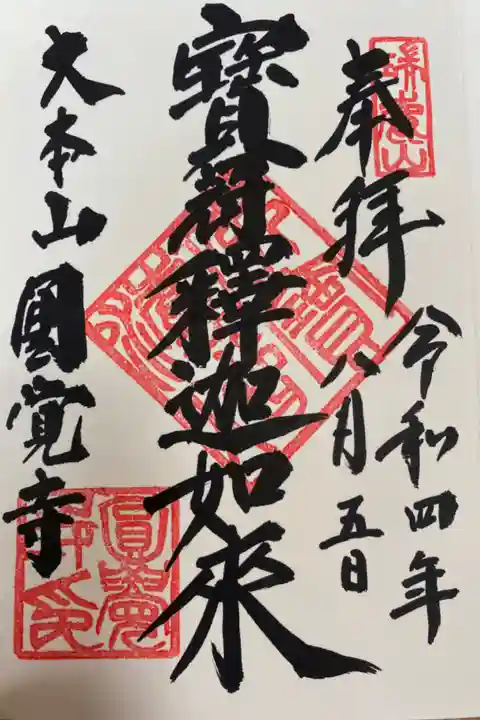 奉拝
令和四年
八月五日
寳冠釋迦如來
大本山圓覚寺
瑞鹿山